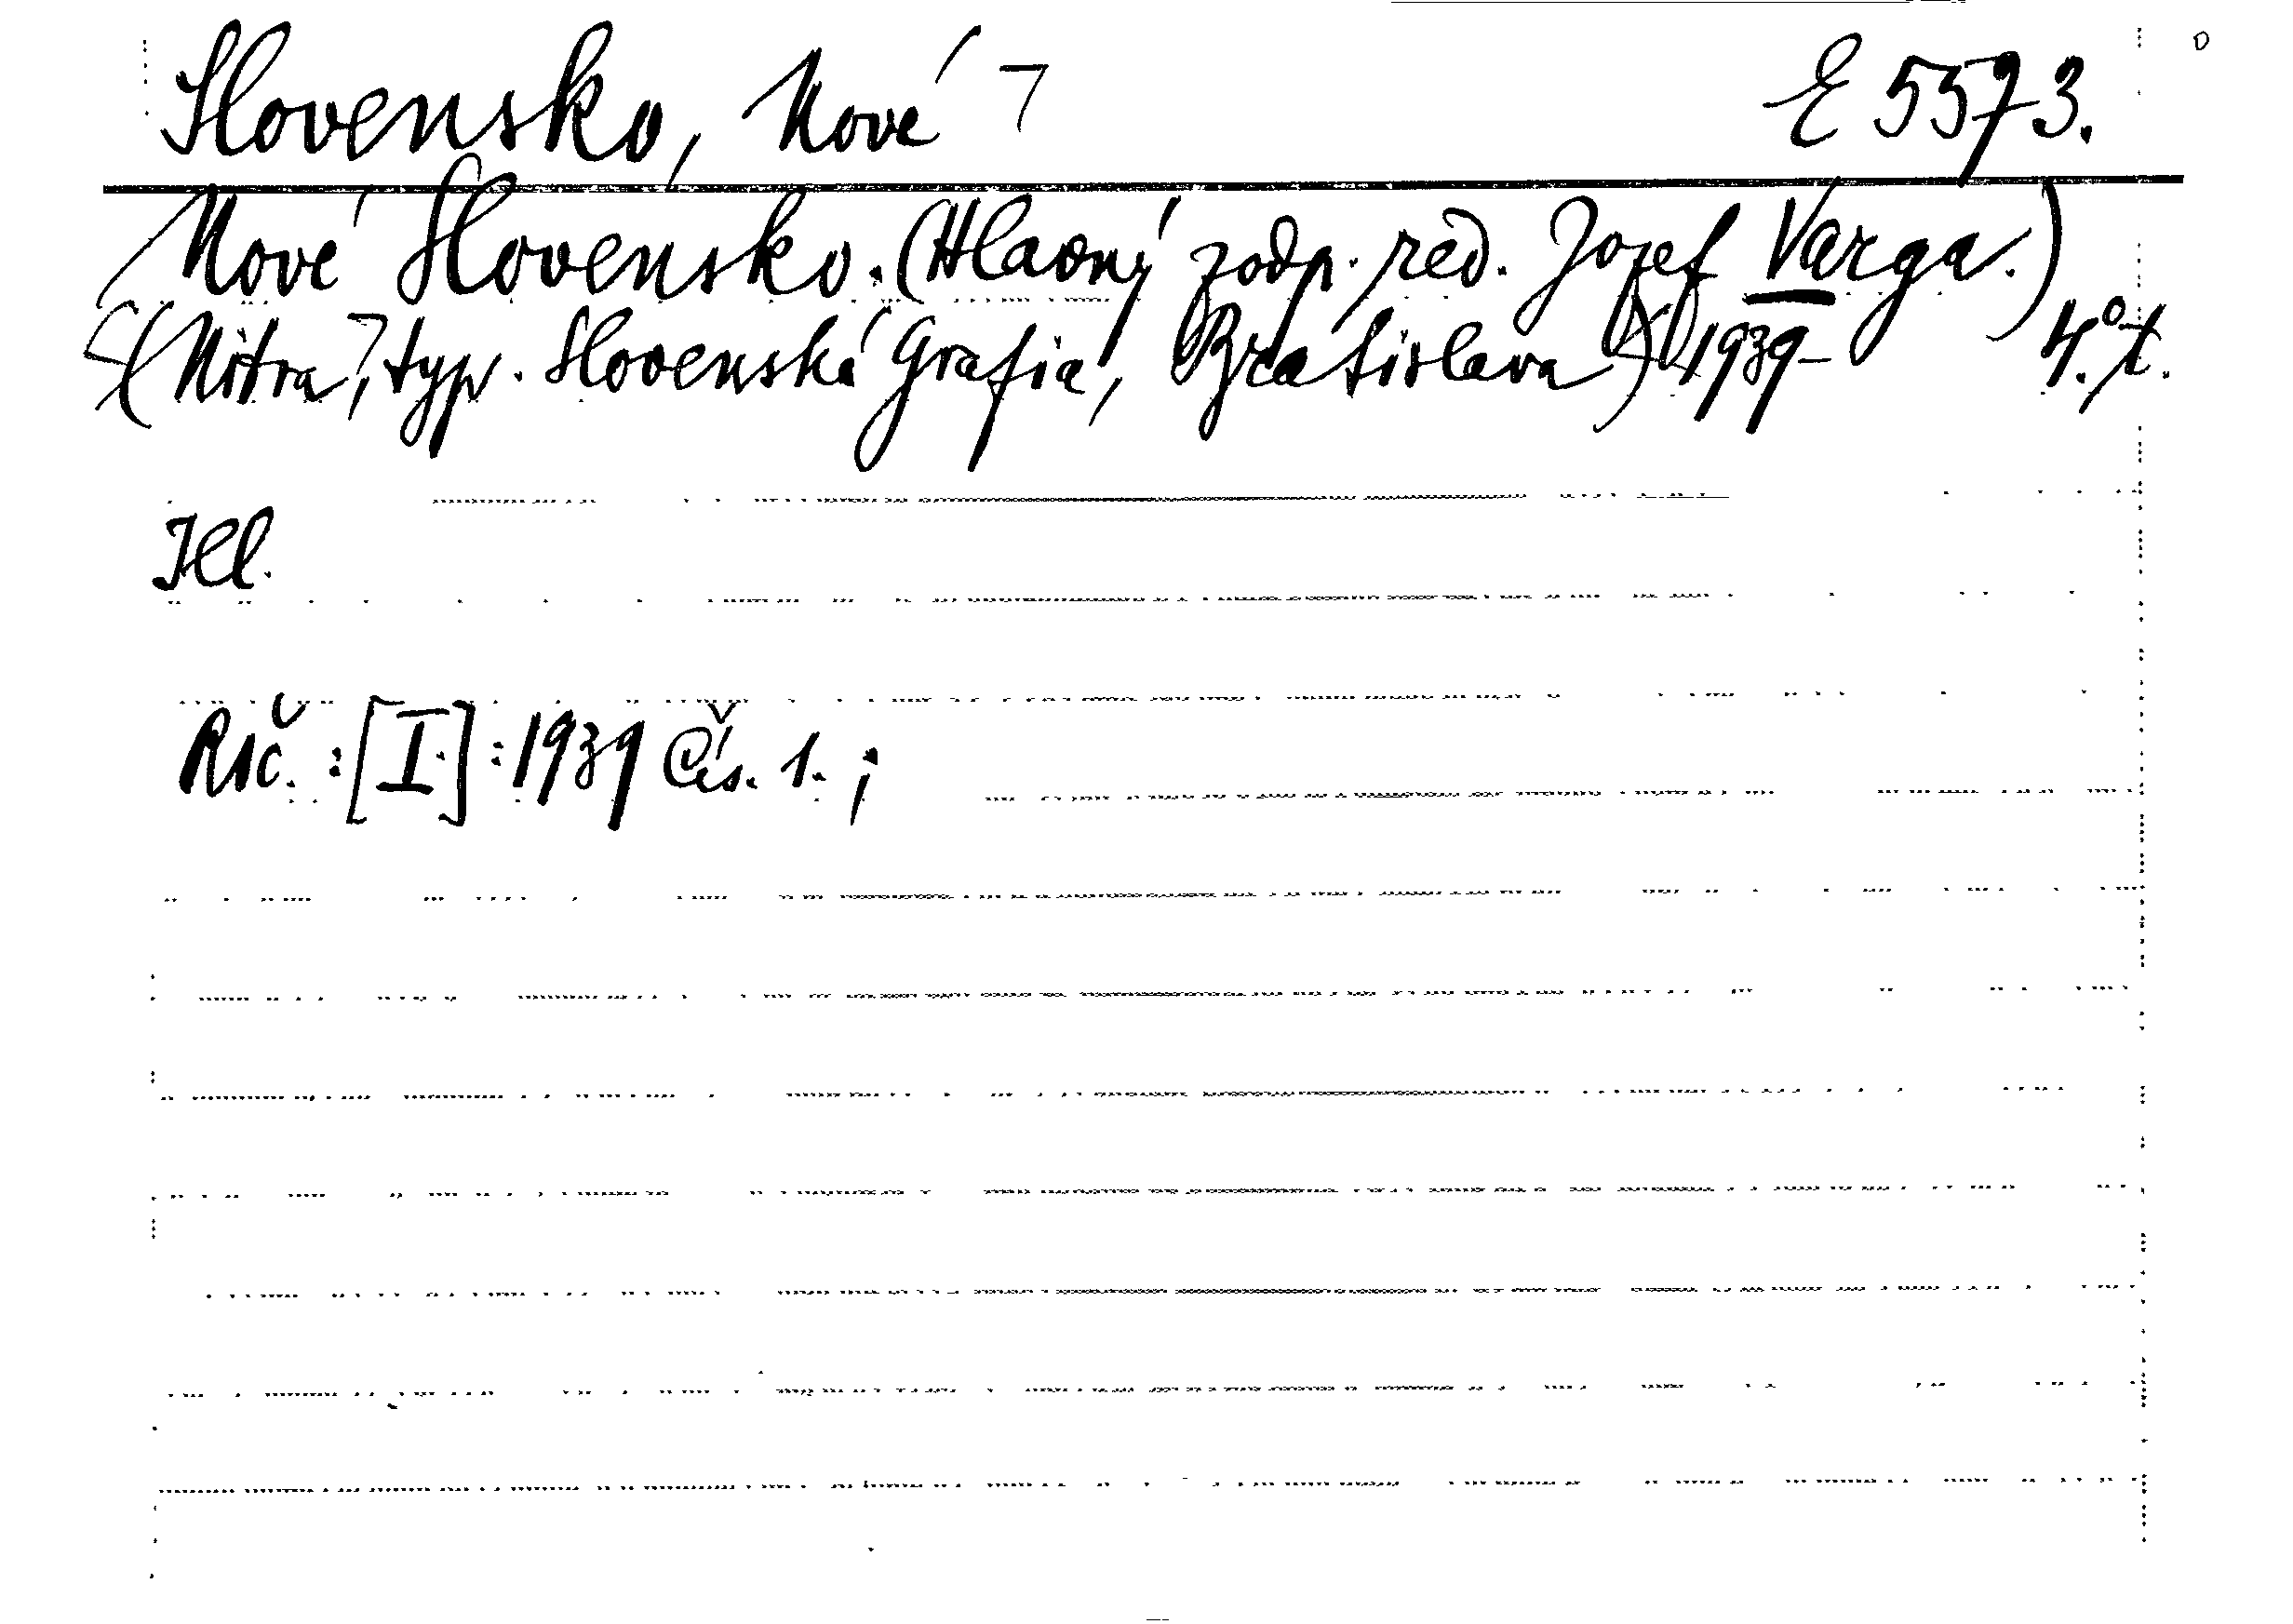 Slovensko, Nové ⌐ E 5573.
Nové Slovensko. (Hlavný zodp. red. Jozef Varga.)
(Nitra, typ. Slovenská Grafia, Bratislava) 1939– 4.° t.
Ill.
Roč.: [I.]: 1939 Čís. 1. ;